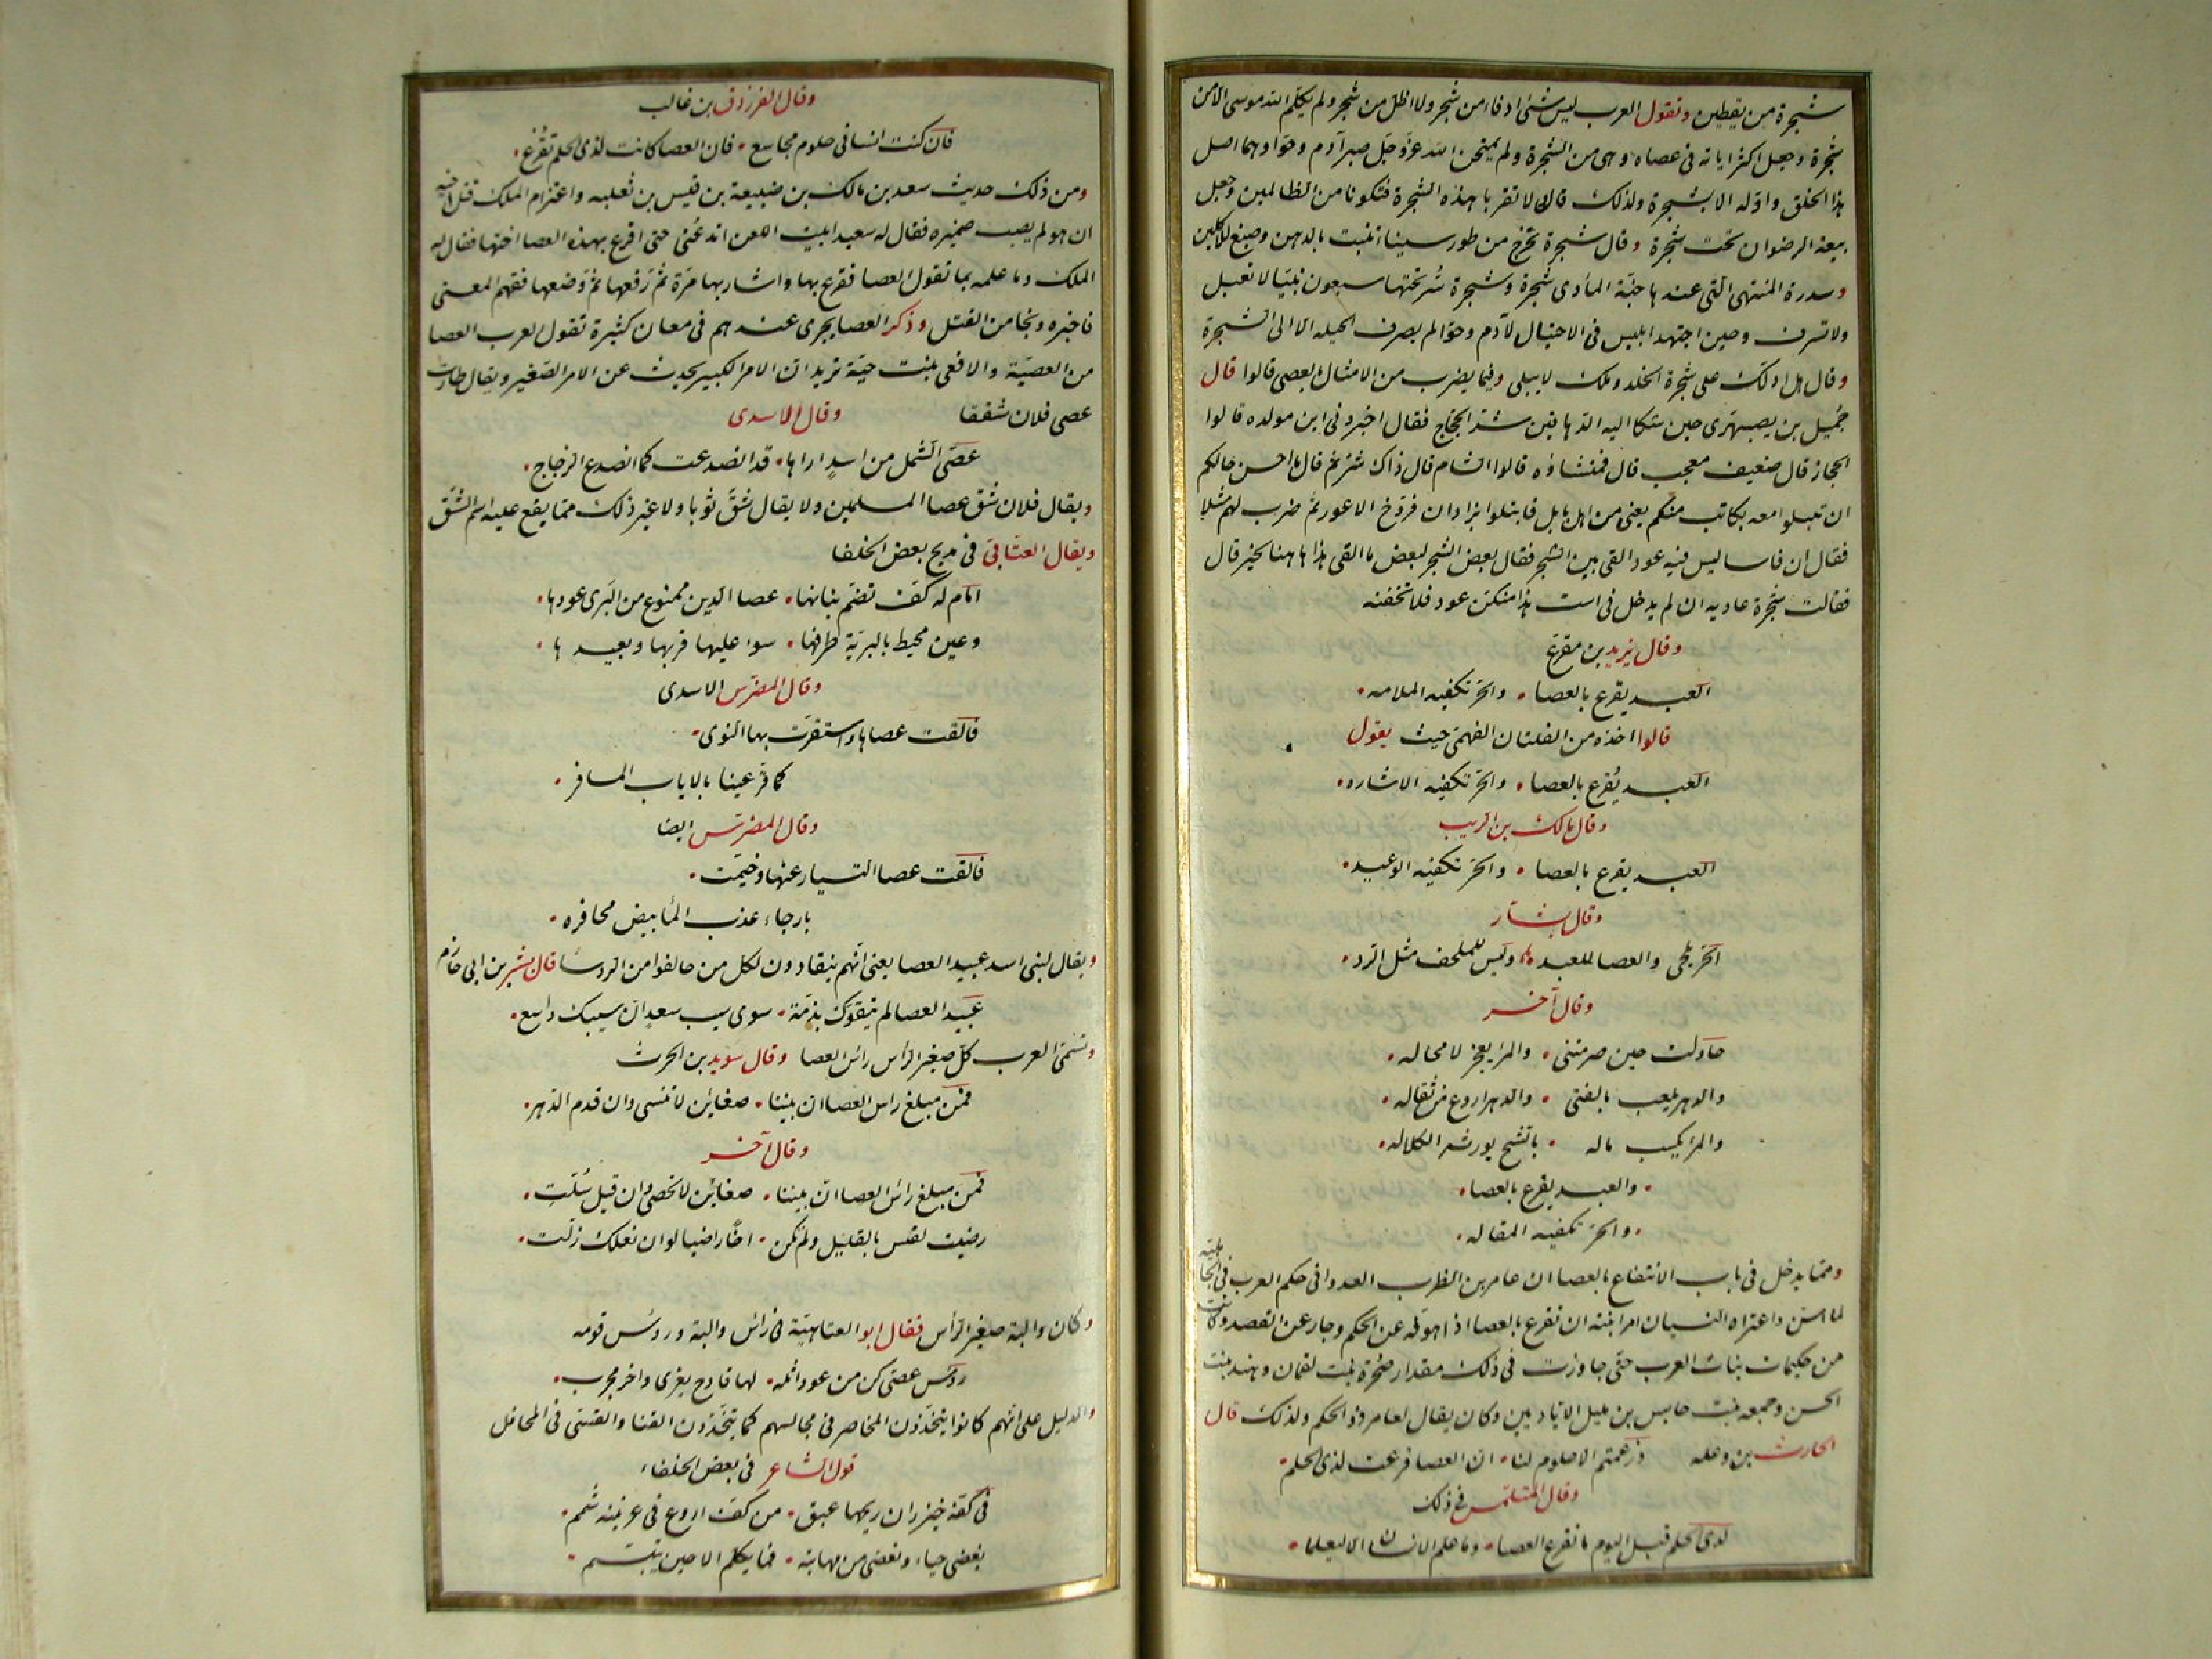 شجرة من يقطين وتقول العرب ليس شئ ادفاء من شجر ولا اظل من شجر ولم يكلم الله موسى الا من
شجرة وجعل اكثر اياته فى عصاه وهى من الشجرة ولم يمتحن الله عز وجل صبر آدم وحوا وهما اصل
هذا الخلق واوله الا بشجرة ولذلك قال لا تقربا هذه الشجرة فتكونا من الظالمين وجعل
بيعة الرضوان تحت شجرة وقال شجرة تخرج من طور سيناء تنبت بالدهن وصبغ للاكلين
وسدرة المنتهى التى عندها جنة المأوى شجرة وشجرة سر تحتها سبعون نبيا لا تعبل
ولا تسرف وحين اجتهد ابليس فى الاحتيال لآدم وحوا لم يصرف الحيله الا الى الشجرة
وقال هل ادلك على شجرة الخلد وملك لا يبلى وفيما يضرب من الامثال بالعصى قالوا قال
جميل بن يصبهرى حين شكا اليه الدهاقين شر الحجاج فقال اخبرونى اين مولده قالوا
الحجاز قال ضعيف معجب قال فمنشاؤه قالوا الشام قال ذاك شر ثم قال ما احسن حالكم
ان تبلوا معه بكاتب منكم يعنى من اهل بابل فابتلوا بزادان فروخ الاعور ثم ضرب لهم مثلا
فقال ان فاسا ليس فيه عود القى بين الشجر فقال بعض الشجر لبعض ما القى هذا ها هنا لخير قال
فقالت شجرة عاديه ان لم يدخل فى است هذا منكن عود فلا تخفنه
وقال يزيد بن مفرغ
العبد يقرع بالعصا • والحر تكفيه الملامه •
قالوا اخذه من الفلتان الفهمى حيث يقول
العبد يُقرع بالعصا • والحر تكفيه الاشاره •
وقال مالك بن الريب
العبد يقرع بالعصا • والحر تكفيه الوعيد •
وقال بشار
الحر يلحى والعصا للعبد • وليس للملحف مثل الرد •
وقال آخر
حاولت حين صرمتنى • والمرء يعجز لا محاله •
والدهر يلعب بالفتى • والدهر اروغ من ثعاله •
والمرء يكسب ماله • بالشح يورثه الكلاله •
• والعبد يقرع بالعصا •
• والحر تكفيه المقاله •
ومما يدخل فى باب الانتفاع بالعصا ان عامر بن الظرب العدوانى حكم العرب فى الجاهلية
لما اسن واعتراه النسيان امر ابنته ان تقرع بالعصا اذا هو فه عن الحكم وجار عن القصد وكانت
من حكيمات بنات العرب حتى جاوزت فى ذلك مقدار صخرة بنت لقمان وهند بنت
الخس وجمعه بنت حابس بن مليل الاياديين وكان يقال لعامر ذو الحكم ولذلك قال
الحارث بن وعله وزعمتم الا حلوم لنا • ان العصا قرعت لذى الحلم •
وقال المتلمس فى ذلك
لذى الحلم قبل اليوم ما تقرع العصا • وما علم الانسان الا ليعلما •
وقال الفرزدق بن غالب
فان كنت انسانى حلوم مجاشع • فان العصا كانت لذى الحلم تقرع •
ومن ذلك حديث سعد بن مالك بن ضبيعة بن قيس بن ثعلبه واعتزام الملك قتل اخيه
ان هو لم يصب ضميره فقال له سعد ابيت اللعن اتدعنى حتى اقرع بهذه العصا اختها فقال له
الملك وما علمه بما تقول العصا فقرع بها واشار بها مرة ثم رفعها ثم وضعها ففهم المعنى
فاخبره ونجا من القتل وذكر العصا يجرى عندهم فى معان كثيرة تقول العرب العصا
من العصية والافعى بنت حية تريد ان الامر الكبير يحدث عن الامر الصغير ويقال طارت
عصى فلان شققا وقال الاسدى
عصى الشمل من اسد اراها • قد انصدعت كما انصدع الزجاج •
ويقال فلان شق عصا المسلمين ولا يقال شق ثوبا ولا غير ذلك مما يقع عليه اسم الشق
ويقال العتابى فى مدح بعض الخلفا
امام له كف تضم بنانها • عصا الدين ممنوع من البرى عودها •
وعين محيط بالبرية طرفها • سوا عليها قربها وبعيدها •
وقال المضرس الاسدى
فالقت عصاها واستقرت بها النوى •
كما قر عينا بالاياب المسافر •
وقال المضرس ايضا
فالقت عصا التسيار عنها وخيمت •
بارجاء عذب الماء بيض محافره •
ويقال لبنى اسد عبيد العصا يعنى انهم ينقادون لكل من حالفوا من الروسا قال بشر بن ابى خازم
عبيد العصا لم يتقوك بذمة • سوى سيب سعد ان سيبك واسع •
وتسمى العرب كل صغير الرأس راس العصا وقال سويد بن الحرث
فمن مبلغ راس العصا ان بيننا • ضغائن لا تنسى وان قدم الدهر •
وقال آخر
فمن مبلغ راس العصا ان بيننا • ضغائن لا تخصى وان قيل سُلّتِ •
رضيت لقيس بالقليل ولم تكن • اخا راضيا لو ان نعلك زلت •
وكان والبة صغير الرأس فقال ابو العتاهية فى رأس والبة ورؤس قومه
رؤس عصى كن من عود اثله • لها قادح يفرى واخر مخرب •
والدليل على انهم كانوا يتخذون المخاصر فى مجالسهم كما يتخذون القنا والقسى فى المحافل
قول الشاعر فى بعض الخلفاء
فى كفه خيزران ريحها عبق • من كف اروع فى عرنينه شمم •
يغضى حياء ويغضى من مهابته • فما يكلم الا حين يبتسم •